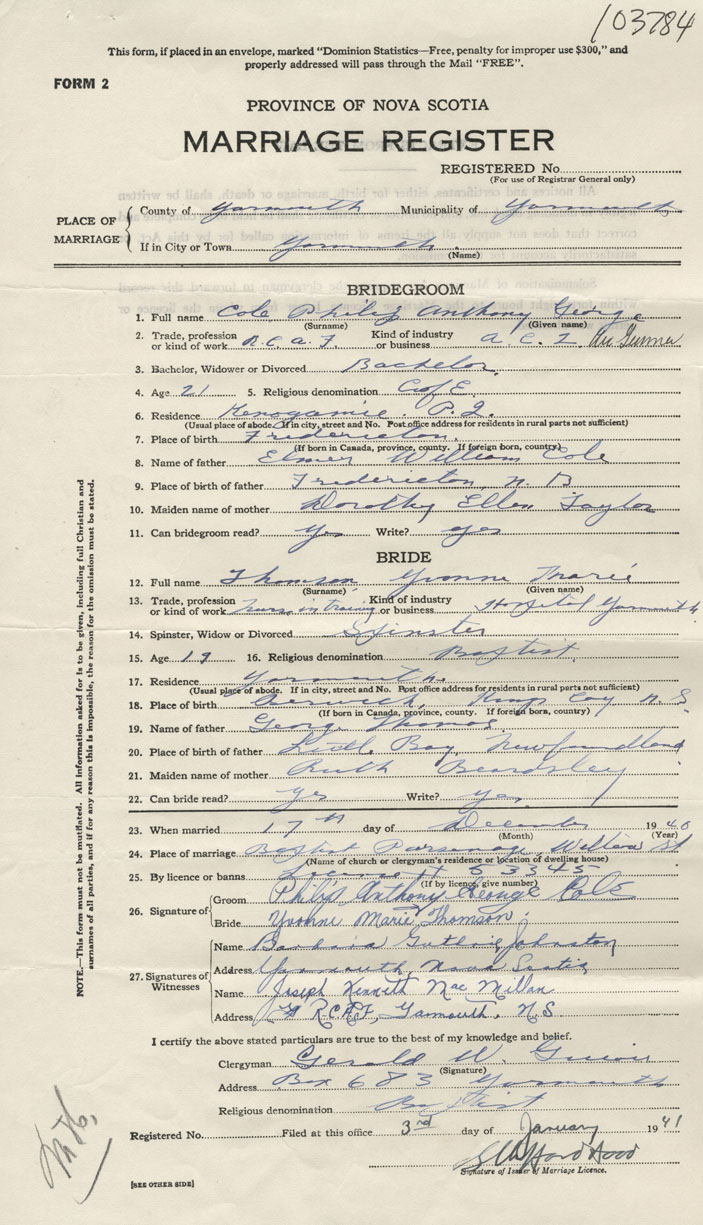 103784
This form, if placed in an envelope, marked "Dominion Statistics—Free, penalty for improper use $300," and
properly addressed will pass through the Mail "FREE".
FORM 2
PROVINCE OF NOVA SCOTIA
MARRIAGE REGISTER
REGISTERED No.
(For use of Registrar General only)
PLACE OF MARRIAGE
County of Yarmouth Municipality of Yarmouth
If in City or Town Yarmouth
(Name)
BRIDEGROOM
1. Full name Cole Philip Anthony George
(Surname) (Given name)
2. Trade, profession or kind of work R.C.A.F. Kind of industry or business Air Gunner
3. Bachelor, Widower or Divorced Bachelor
4. Age 21 5. Religious denomination C of E
6. Residence Kenogamie P.Q.
(Usual place of abode. If in city, street and No. Post office address for residents in rural parts not sufficient)
7. Place of birth Fredericton
(If born in Canada, province, county. If foreign born, country)
8. Name of father Elmer William Cole
9. Place of birth of father Fredericton, N.B
10. Maiden name of mother Dorothy Ellen Taylor
11. Can bridegroom read? Yes Write? Yes
BRIDE
12. Full name Thomson Yvonne Marie
(Surname) (Given name)
13. Trade, profession or kind of work Nurse in training Kind of industry or business Hospital Yarmouth
14. Spinster, Widow or Divorced Spinster
15. Age 19 16. Religious denomination Baptist
17. Residence Yarmouth
(Usual place of abode. If in city, street and No. Post office address for residents in rural parts not sufficient)
18. Place of birth Berwick Kings Coy N.S
(If born in Canada, province, county. If foreign born, country)
19. Name of father George Thomson
20. Place of birth of father Little Bay, Newfoundland
21. Maiden name of mother Ruth Beardsley
22. Can bride read? Yes Write? Yes
23. When married 17th day of December 1940
(Month) (Year)
24. Place of marriage Baptist Parsonage William St
(Name of church or clergyman's residence or location of dwelling house)
25. By licence or banns License # 53345
(If by licence, give number)
26. Signature of
Groom Philip Anthony George Cole
Bride Yvonne Marie Thomson
27. Signatures of Witnesses
Name Barbara Guthrie Johnston
Address Yarmouth, Nova Scotia
Name Joseph Kenneth MacMillan
Address RCAF, Yarmouth, N.S
I certify the above stated particulars are true to the best of my knowledge and belief.
Clergyman Gerald W.
(Signature)
Address Box 683 Yarmouth
Religious denomination Baptist
Registered No. Filed at this office 3rd day of January 1941
Signature of Issuer of Marriage Licence.
[SEE OTHER SIDE]
NOTE.—This form must not be mutilated. All information asked for is to be given, including full Christian and
surnames of all parties, and if for any reason this is impossible, the reason for the omission must be stated.